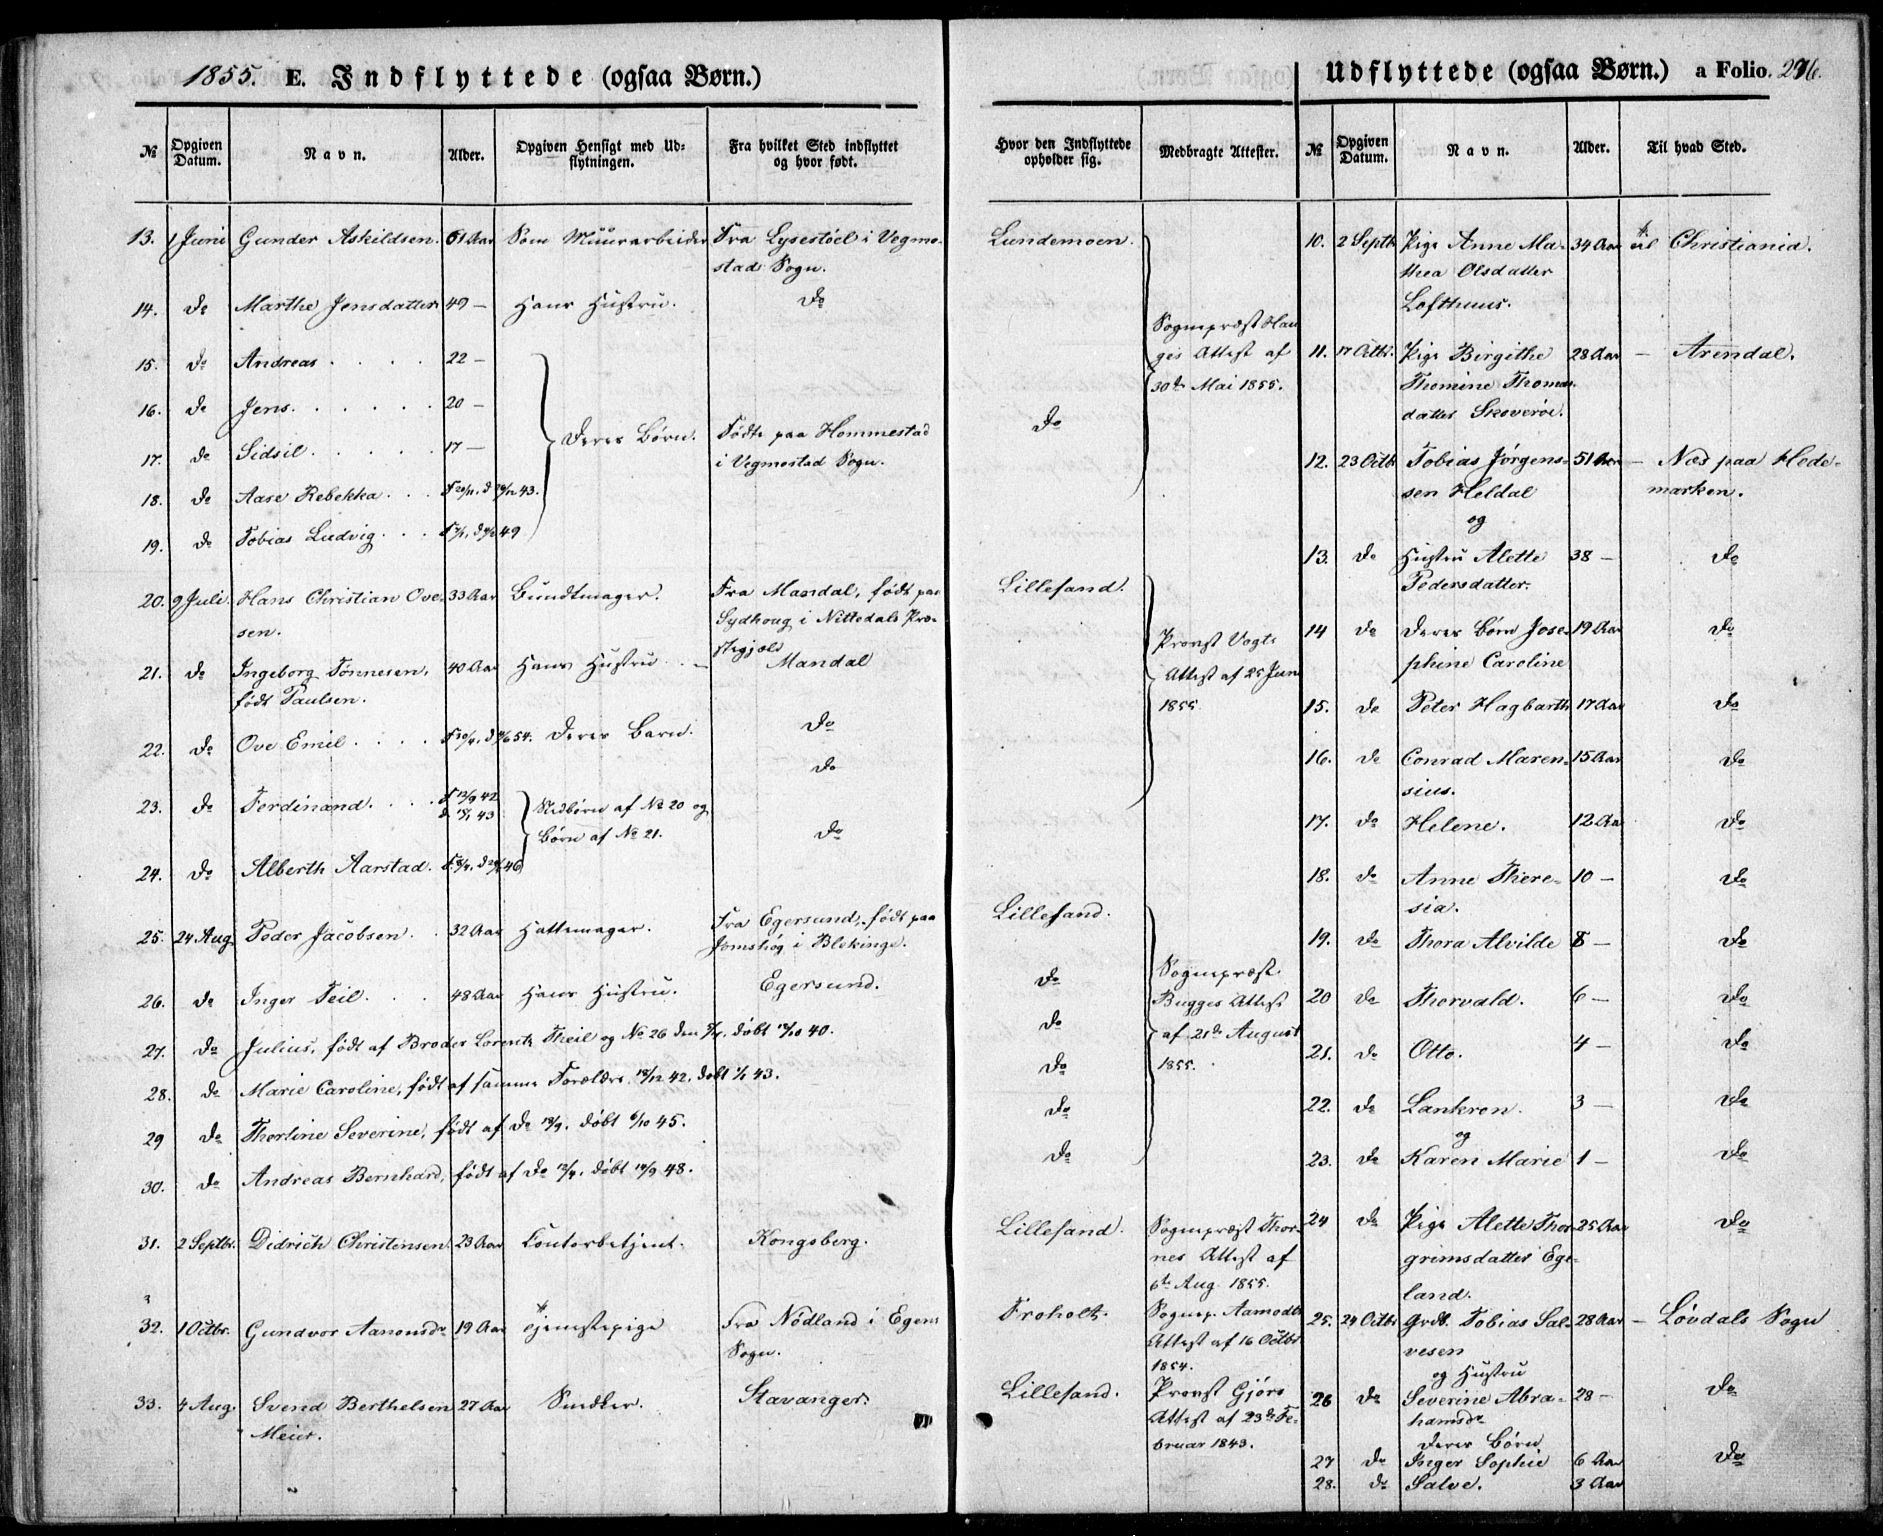 1855. E. Indflyttede (ogsaa Børn.)
Udflyttede (ogsaa Børn.) a Folio.
№ Opgiven Datum. Navn. Alder. Opgiven Hensigt med Udflytningen. Fra hvilket Sted indflyttet og hvor født.
Hvor den Indflyttede opholder sig. Medbragte Attester. № Opgiven Datum. Navn. Alder. Til hvad Sted.
13. 1 Juni Gunder Askildsen. 51 Aar Som Muurarbeider Fra Lysestøel i Vegmo-
stad Sogn.
14. do Marthe Jensdatter 49 — Hans Hustru. do
15. do Andreas . . . . 22 —
16. do Jens. . . . . . 20 —
Deres Børn. Fødte paa Hommestad
17. do Sidsil . . . . . 17 — i Vegmostad Sogn.
18. do Aase Rebekka . . .
19. do Tobias Ludvig . . .
20. 9 Juli. Hans Christian Ove- 33 Aar Bundtmager. Fra Mandal, født paa
sen. Sydhoug i Nittedals Præ-
stegjæld
21. do Ingeborg Tønnesen, 40 Aar Hans Hustru . . — Mandal
født Paulsen.
22. do Ove Emil . . . . Deres Barn. do
do
23. do Ferdinand. . . . F 12/9 42 Stedbørn af No 20 og
43 Børn af No 21. do
24. do Alberth Aarstad. 46
25. 24 Aug. Peder Jacobsen . . 32 Aar Hattemager. Fra Egersund, født paa
Jemshög i Blekinge.
26. do Inger Teil. . . 48 Aar Hans Hustru. Egersund.
27. do Julius, født af Broder Lorentz Theil og No 26 den døbt 40.
28. do Marie Caroline, født af samme Forældre 18/12 42, døbt 1/1 43.
29 do Thorline Severine, født af do 13/9. døbt 6/10 45.
30. do Andreas Bernhard, født af do døbt 48.
31. 2 Septbr. Didrich Christensen 23 Aar Contorbetjent. Kongsberg.
32. 1 Octbr. Gundvor Aanonsdr 19 Aar Tjenestepige Fra Nödland i Egers
Sogn.
33. 4 Aug. Svend Berthelsen 27 Aar Snedker. Stavanger.
Meier.
Lundemoen.
Sognepræst Hau
ges Attest af
30te Mai 1855.
do
Lillesand.
Provst Vogts
Attest af 25 Juni
1855
Lillesand.
Sognepræst
do
Bugges Attest
do
af 21de August
do
1855.
do
do
Lillesand. Sognepræst Thor-
nes Attest af
6te Aug. 1855.
Froholt. Sognep. Aamodts
Attest af 16 Octbr
1854.
Lillesand. Provst Gjørs
Attest af 23de Fe-
bruar 1843.
10. 2 Septb. Pige Anne Ma- 34 Aar til Christiania.
thea Olsdatter
Lofthuus.
11. 17 Octbr. Pige Birgithe 28 Aar — Arendal.
Thomine Thomas-
datter Skoverøe.
12. 23 Octb. Tobias Jørgens- 51 Aar — Næs paa Hede-
sen Heldal marken.
og
13. do Hustru Alette 38 — do
Pedersdatter.
14 do Deres Børn Jose- 19 Aar do
phine Caroline
15. do Peter Hagbarth 17 Aar do
16. do Conrad Maren- 15 Aar do
sius.
17. do Helene. 12 Aar do
18. do Anne There- 10 — do
sia.
19. do Thora Alvilde 8 — do
20 do Thorvald. 6 — do
21. do Otto. 4 — do
22. do Lankron. 3 — do
og
23. do Karen Marie 1 — do
24 do Pige Alette Thor 25 Aar do
grimsdatter Ege-
land.
25. 24 Octbr Grdb. Tobias Sal- 28 Aar — Løvdals Sogn
vesen
og Hustru
26 do Severine Abra- 28 — do
hamsdr
Deres Børn
27 do Inger Sophie 6 Aar do
28. do Salve. 3 Aar